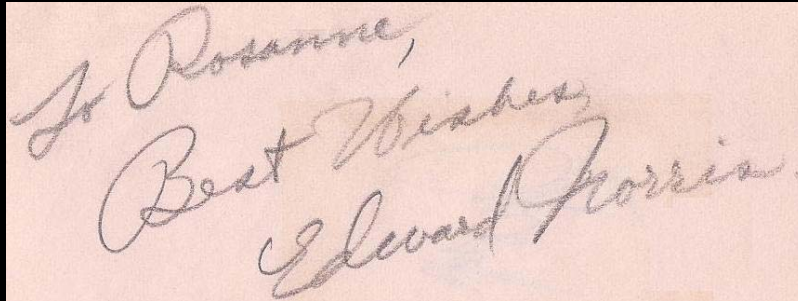 To Rosanne,
Best Wishes
Edward Norris